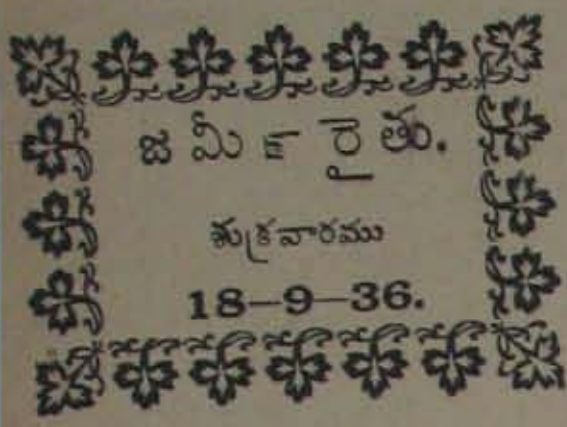 జమీ౯ రైతు.
శుక్రవారము
18—9—36.